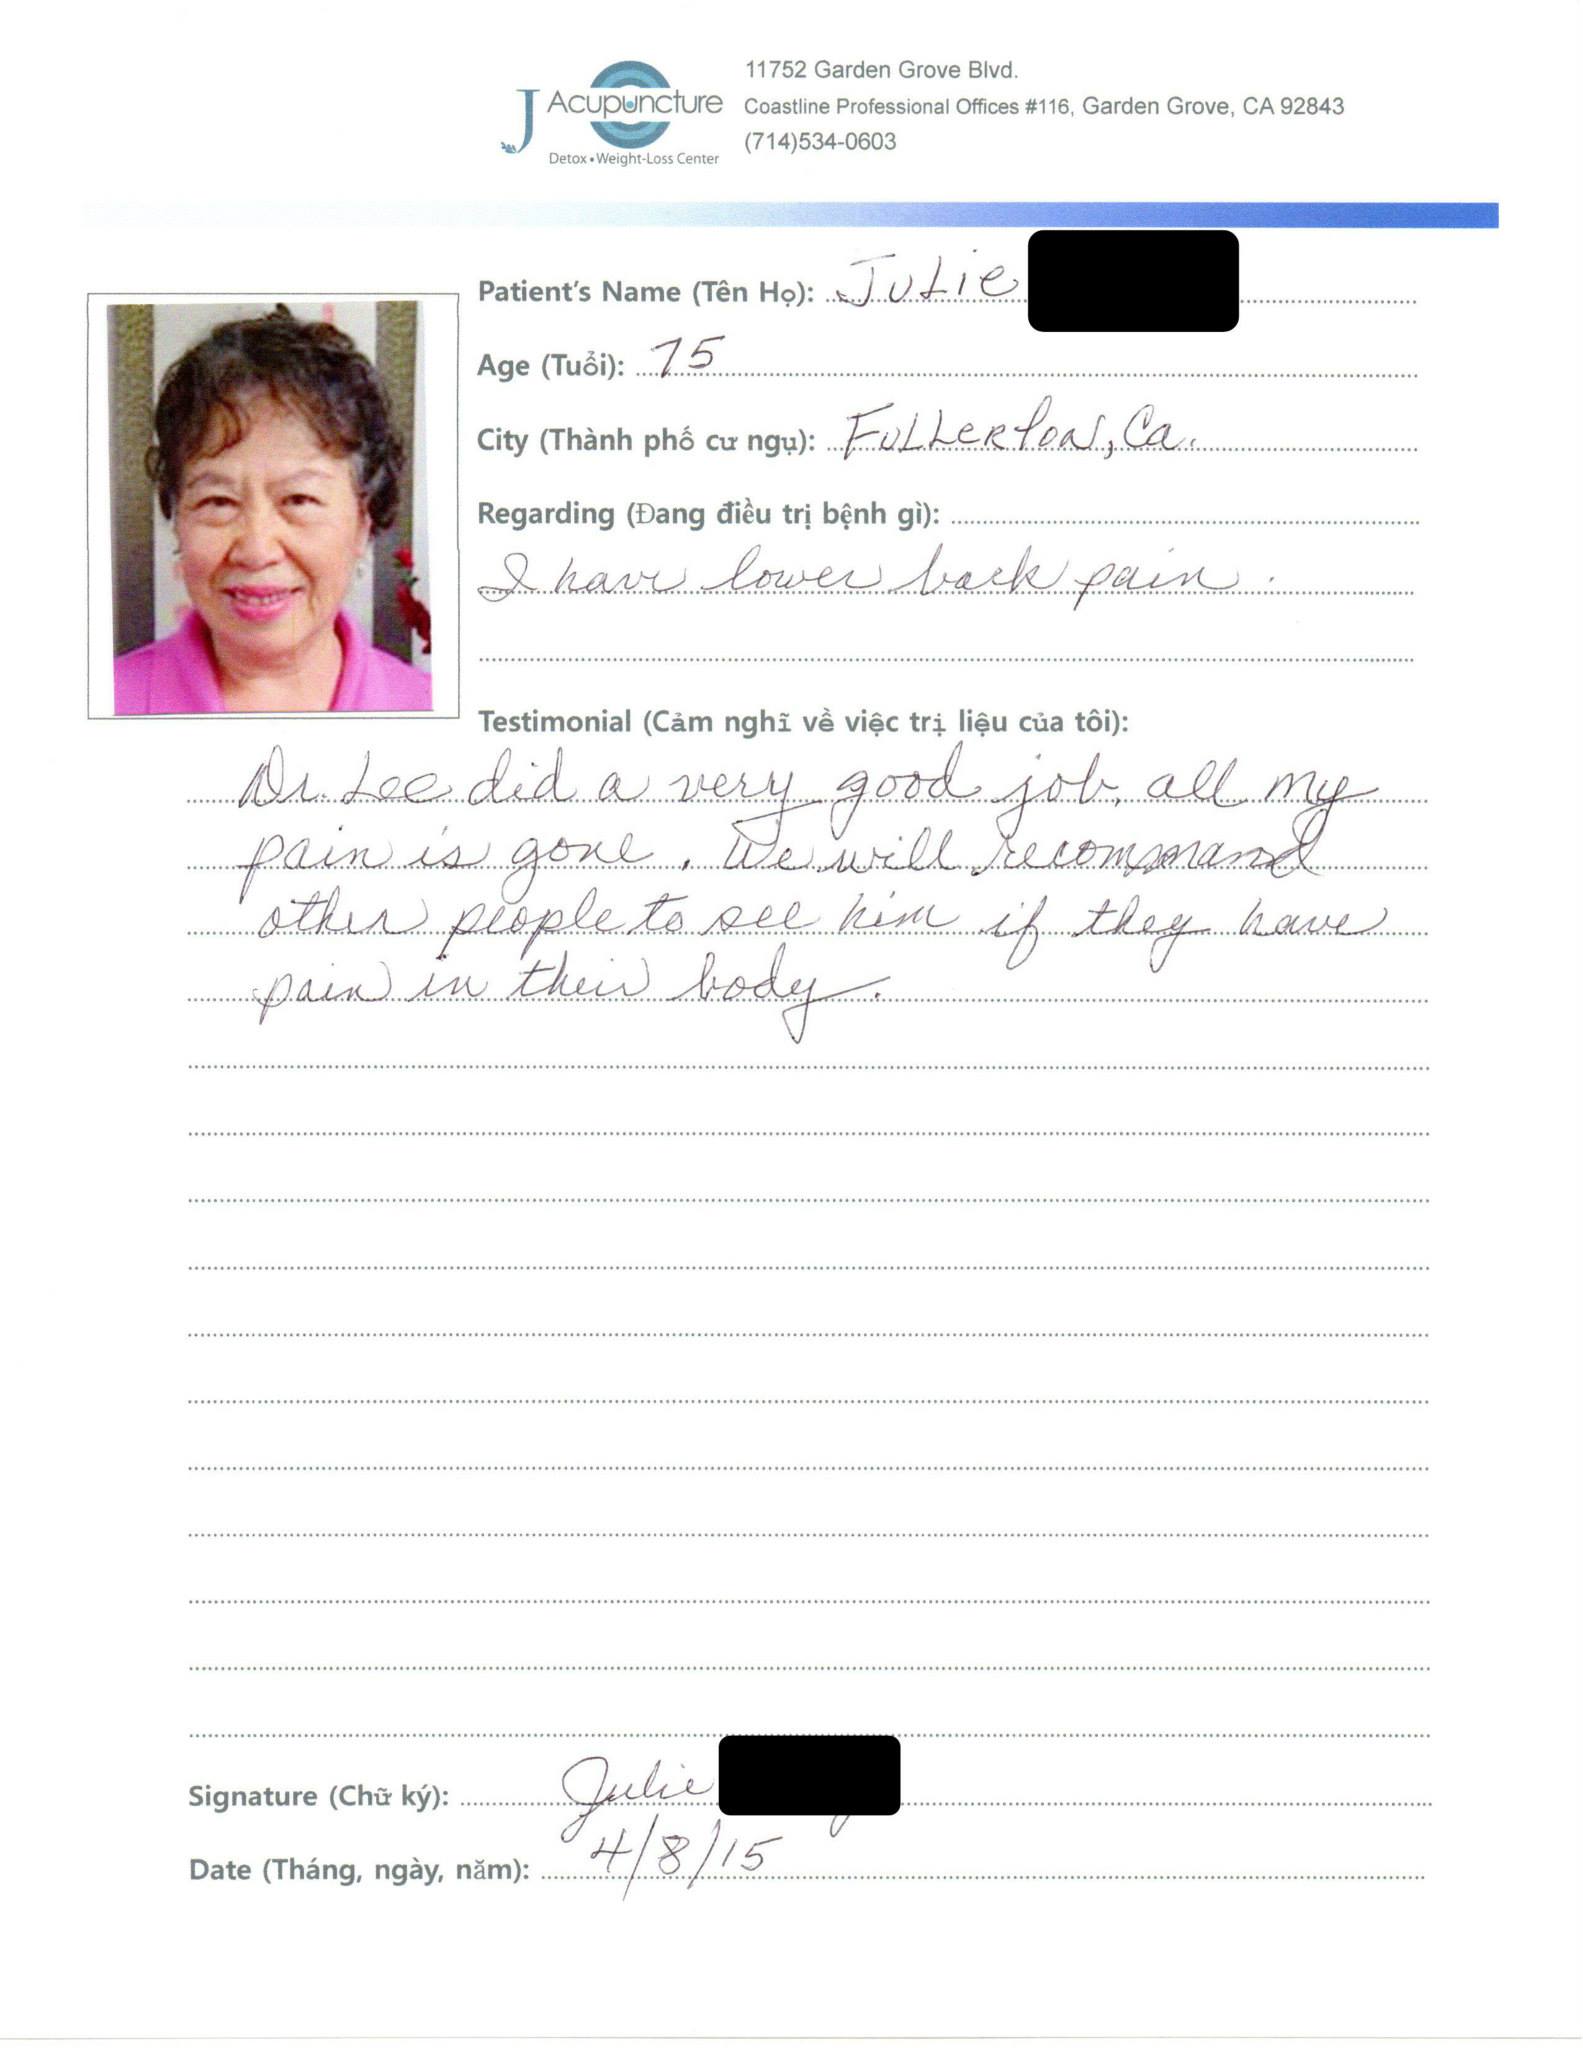 J Acupuncture
Detox • Weight-Loss Center
11752 Garden Grove Blvd.
Coastline Professional Offices #116, Garden Grove, CA 92843
(714)534-0603
Patient's Name (Tên Họ): Julie
Age (Tuổi): 75
City (Thành phố cư ngụ): Fullerton, Ca.
Regarding (Đang điều trị bệnh gì):
I have lower back pain.
Testimonial (Cảm nghĩ về việc trị liệu của tôi):
Dr. Lee did a very good job, all my
pain is gone. We will recommand
other people to see him if they have
pain in their body.
Signature (Chữ ký): Julie
Date (Tháng, ngày, năm): 4/8/15